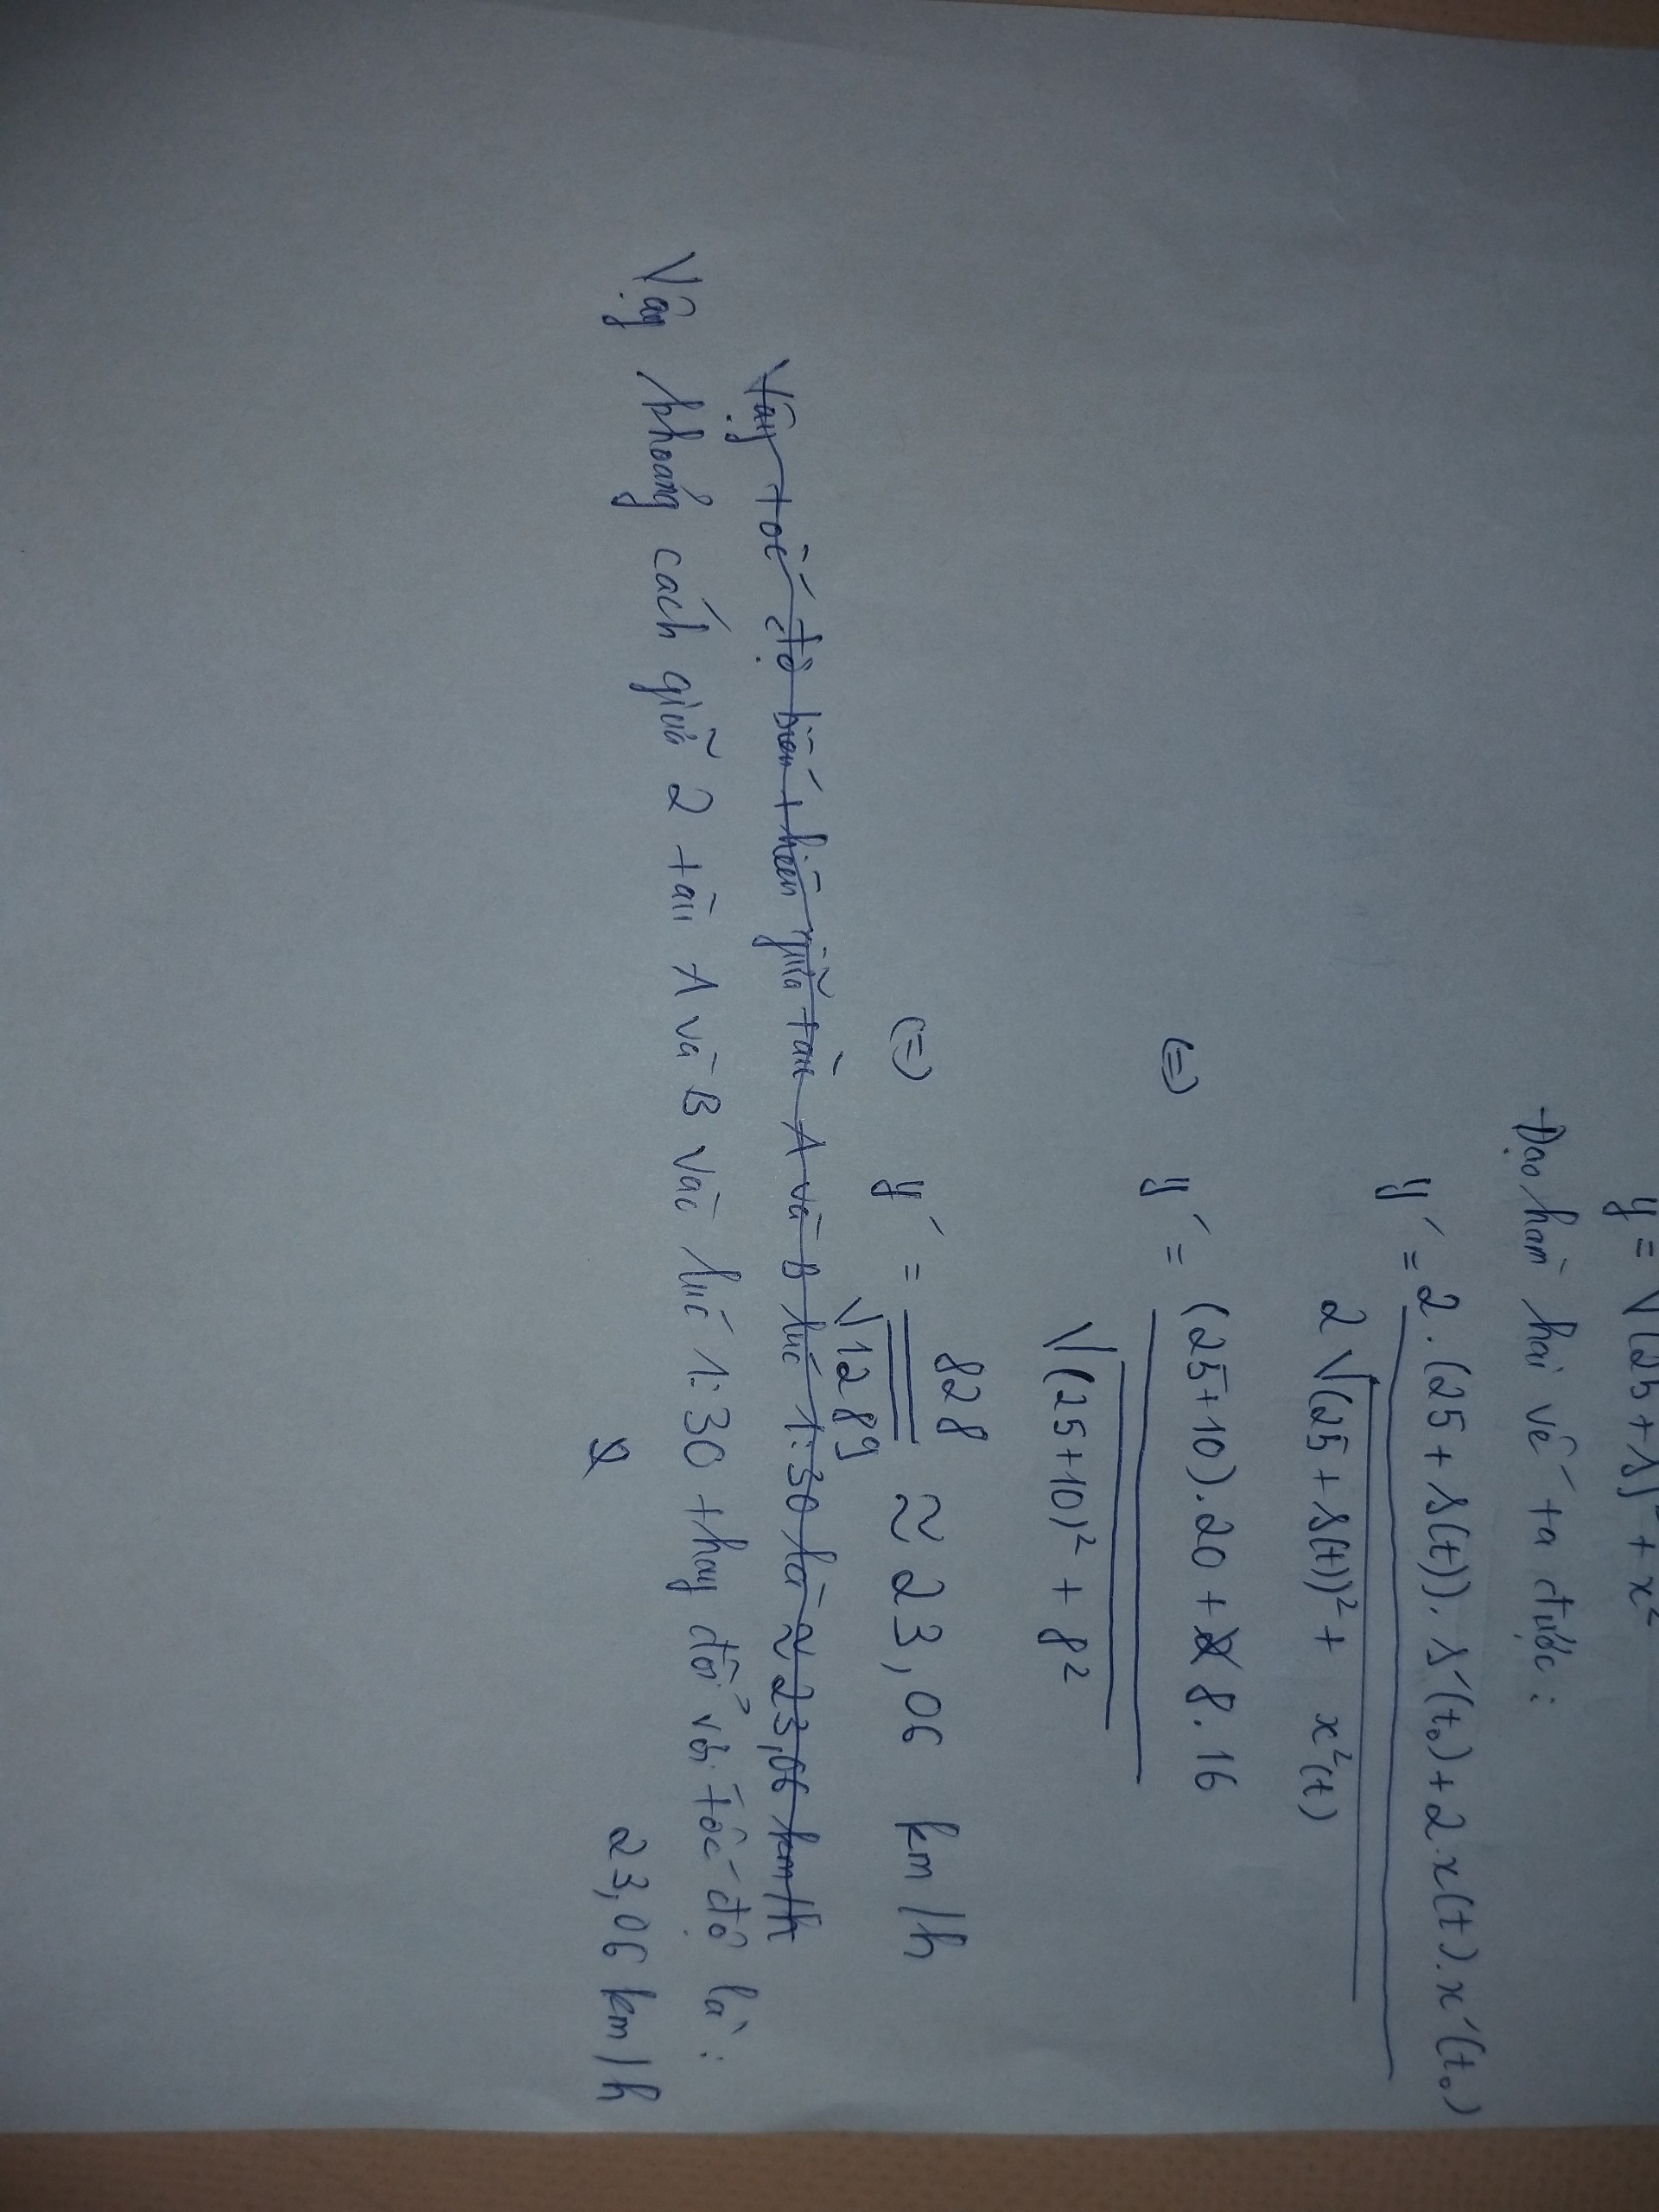 y = √(25 + s)² + x²
Đạo hàm hai vế ta được:
y' = 2.(25 + s(t)). s'(t₀) + 2.x(t).x'(t₀)
2√(25 + s(t))² + x²(t)
(=) y' = (25+10).20 + 8.16
√(25+10)² + 8²
(=) y' = 828 / √1289 ≈ 23,06 km/h
Vậy tốc độ biến thiên giữa tàu A và B lúc 1:30 là ≈ 23,06 km/h
Vậy khoảng cách giữa 2 tàu A và B vào lúc 1:30 thay đổi với tốc độ là:
23,06 km/h